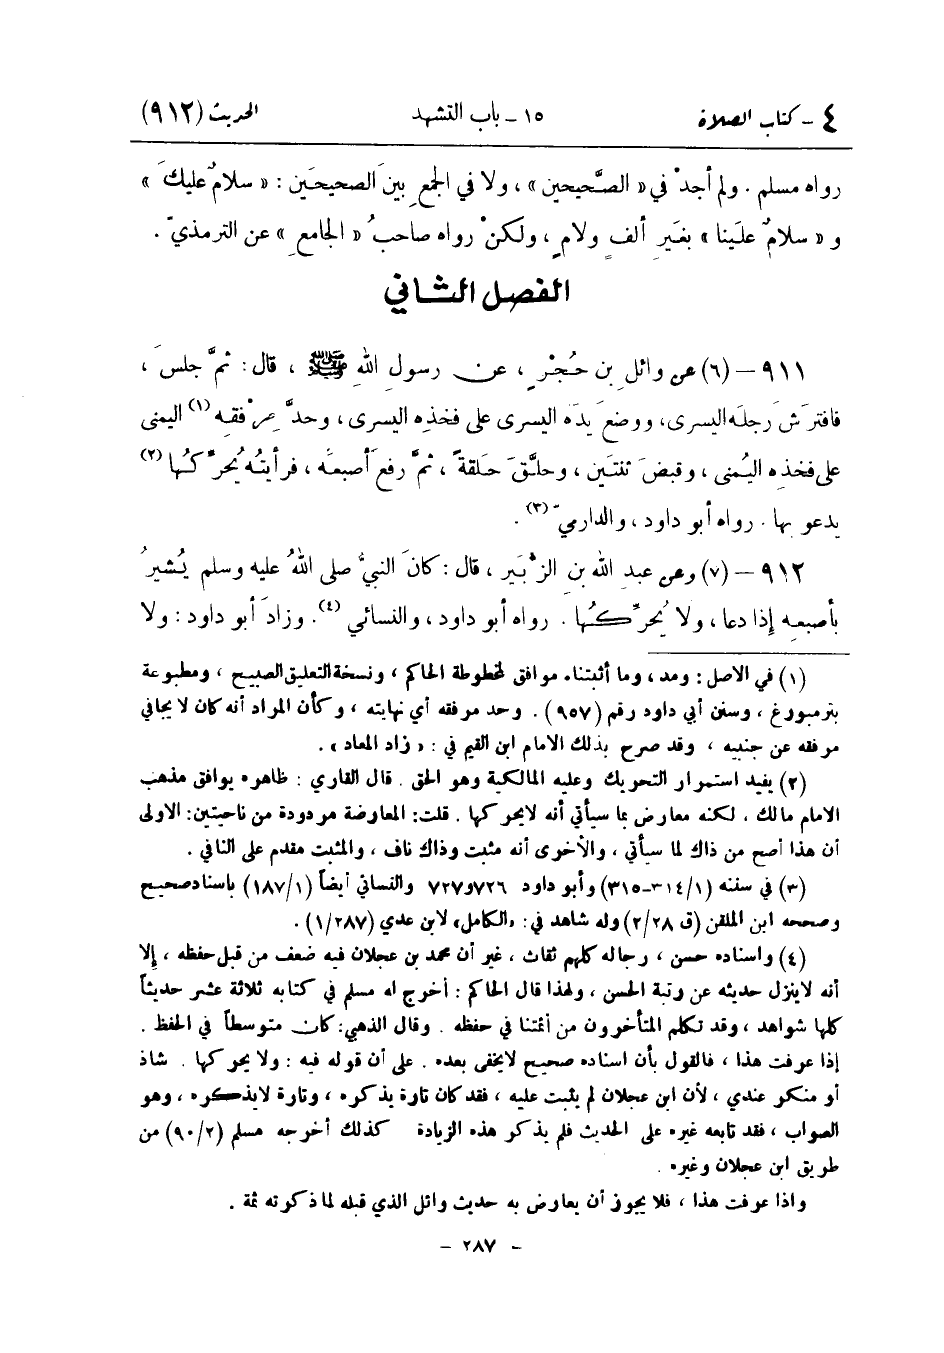 ٤ - كتاب الصلاة ١٥ - باب التشهد الحديث (٩١٢)
رواه مسلم . ولم أجدْ في « الصَّحيحين » ، ولا في الجمعِ بين الصحيحَين : « سلامٌ عليكَ »
و « سلامٌ علَينا » بغَيرِ ألفٍ ولامٍ ، ولكنْ رواه صاحبُ « الجامعِ » عن الترمذيّ .
الفصل الثاني
٩١١ - (٦) عن وائلِ بن حُجْرٍ ، عن رسولِ اللهِ ﷺ ، قال : ثمَّ جلسَ ،
فافترَشَ رجلَه اليسرى، ووضعَ يدَه اليسرى على فخذِه اليسرى ، وحدَّ مِرْفقَه (١) اليمنى
على فخذِه اليُمنى ، وقبضَ ثنتَين ، وحلَّقَ حَلقةً ، ثمَّ رفعَ أصبعَه ، فرأيتُه يُحرِّكُها (٢)
يدعو بها . رواه أبو داود ، والدارميّ (٣) .
٩١٢ - (٧) وعن عبدِ الله بنِ الزُّبَير ، قال : كانَ النبيُّ صلى اللهُ عليه وسلم يُشيرُ
بأصبعِه إِذا دعا ، ولا يُحرِّكُها . رواه أبو داود ، والنسائي (٤). وزادَ أبو داود : ولا
(١) في الاصل : ومد ، وما أثبتناه موافق لمخطوطة الحاكم ، ونسخة التعليق الصبيح ، ومطبوعة
بترمبورغ ، وسنن أبي داود رقم (٩٥٧) . وحد مرفقه أي نهايته ، وكأن المراد أنه كان لا يجافي
مرفقه عن جنبيه ، وقد صرح بذلك الامام ابن القيم في : « زاد المعاد » .
(٢) يفيد استمرار التحريك وعليه المالكية وهو الحق . قال القاري : ظاهره يوافق مذهب
الامام مالك ، لكنه معارض بما سيأتي أنه لايحركها . قلت: المعارضة مردودة من ناحيتين: الاولى
أن هذا أصح من ذاك لما سيأتي ، والأخرى أنه مثبت وذاك ناف ، والمثبت مقدم على النافي .
(٣) في سننه (٣١٤/١-٣١٥) وأبو داود ٧٢٦ و٧٢٧ والنسائي أيضاً (١٨٧/١) باسناد صحيح
وصححه ابن الملقن (ق ٢/٢٨) وله شاهد في: «الكامل» لابن عدي (١/٢٨٧) .
(٤) واسناده حسن ، رجاله كلهم ثقات ، غير أن محمد بن عجلان فيه ضعف من قبل حفظه ، إلا
أنه لاينزل حديثه عن رتبة الحسن ، ولهذا قال الحاكم : أخرج له مسلم في كتابه ثلاثة عشر حديثاً
كلها شواهد ، وقد تكلم المتأخرون من أئمتنا في حفظه . وقال الذهبي: كان متوسطاً في الحفظ .
إذا عرفت هذا ، فالقول بأن اسناده صحيح لايخفى بعده . على أن قوله فيه : ولا يحركها . شاذ
أو منكر عندي ، لأن ابن عجلان لم يثبت عليه ، فقد كان تارة يذكره ، وتارة لايذكره ، وهو
الصواب ، فقد تابعه غيره على الحديث فلم يذكر هذه الزيادة كذلك أخرجه مسلم (٩٠/٢) من
طريق ابن عجلان وغيره .
واذا عرفت هذا ، فلا يجوز أن يعارض به حديث وائل الذي قبله لما ذكرته ثمة .
- ٢٨٧ -